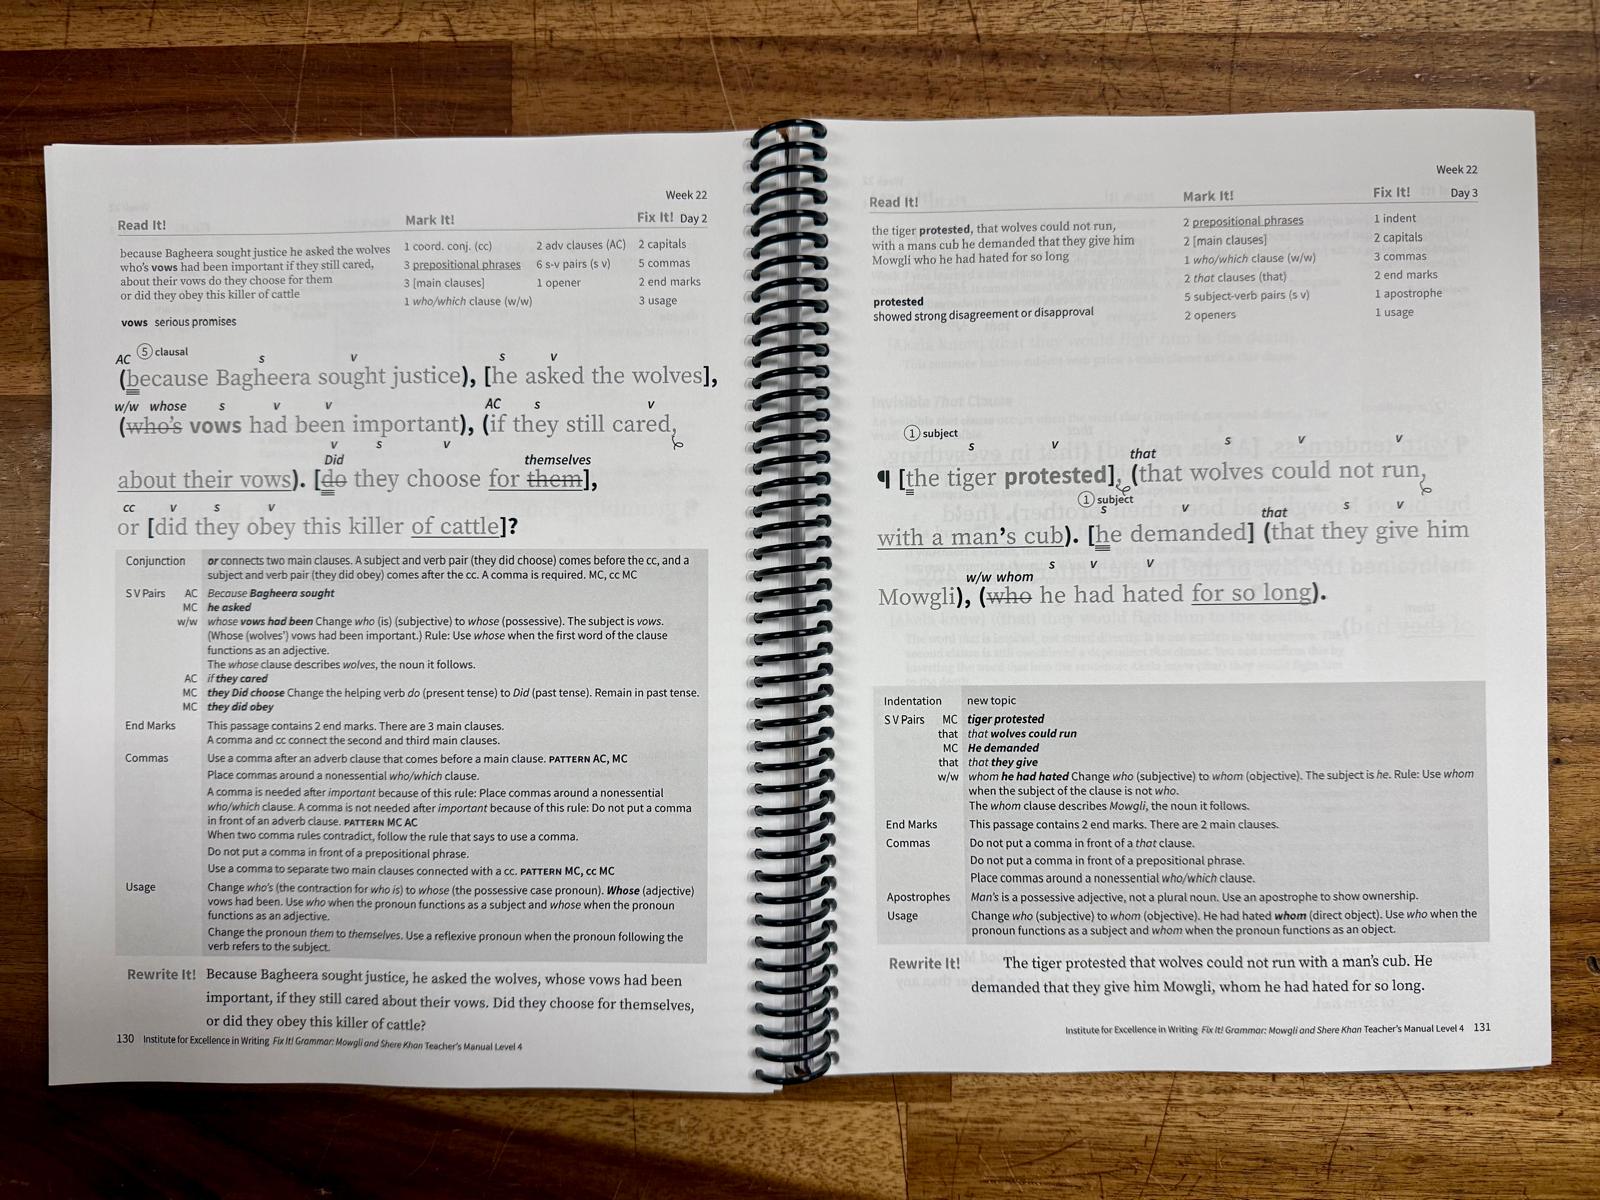 Week 22
Read It!
Mark It!
Fix It! Day 2
because Bagheera sought justice he asked the wolves
who's vows had been important if they still cared,
about their vows do they choose for them
or did they obey this killer of cattle
1 coord. conj. (cc)
3 prepositional phrases
3 [main clauses]
1 who/which clause (w/w)
2 adv clauses (AC)
6 s-v pairs (s v)
1 opener
2 capitals
5 commas
2 end marks
3 usage
vows serious promises
AC 5 clausal s v s v
(because Bagheera sought justice), [he asked the wolves],
w/w whose s v v AC s v
(who's vows had been important), (if they still cared,
v s v
Did themselves
about their vows). [do they choose for them],
cc v s v
or [did they obey this killer of cattle]?
Conjunction or connects two main clauses. A subject and verb pair (they did choose) comes before the cc, and a
subject and verb pair (they did obey) comes after the cc. A comma is required. MC, cc MC
S V Pairs AC Because Bagheera sought
MC he asked
w/w whose vows had been Change who (is) (subjective) to whose (possessive). The subject is vows.
(Whose (wolves') vows had been important.) Rule: Use whose when the first word of the clause
functions as an adjective.
The whose clause describes wolves, the noun it follows.
AC if they cared
MC they Did choose Change the helping verb do (present tense) to Did (past tense). Remain in past tense.
MC they did obey
End Marks This passage contains 2 end marks. There are 3 main clauses.
A comma and cc connect the second and third main clauses.
Commas Use a comma after an adverb clause that comes before a main clause. PATTERN AC, MC
Place commas around a nonessential who/which clause.
A comma is needed after important because of this rule: Place commas around a nonessential
who/which clause. A comma is not needed after important because of this rule: Do not put a comma
in front of an adverb clause. PATTERN MC AC
When two comma rules contradict, follow the rule that says to use a comma.
Do not put a comma in front of a prepositional phrase.
Use a comma to separate two main clauses connected with a cc. PATTERN MC, cc MC
Usage Change who's (the contraction for who is) to whose (the possessive case pronoun). Whose (adjective)
vows had been. Use who when the pronoun functions as a subject and whose when the pronoun
functions as an adjective.
Change the pronoun them to themselves. Use a reflexive pronoun when the pronoun following the
verb refers to the subject.
Rewrite It! Because Bagheera sought justice, he asked the wolves, whose vows had been
important, if they still cared about their vows. Did they choose for themselves,
or did they obey this killer of cattle?
130 Institute for Excellence in Writing Fix It! Grammar: Mowgli and Shere Khan Teacher's Manual Level 4
Week 22
Read It!
Mark It!
Fix It! Day 3
the tiger protested, that wolves could not run,
with a mans cub he demanded that they give him
Mowgli who he had hated for so long
protested
showed strong disagreement or disapproval
2 prepositional phrases
2 [main clauses]
1 who/which clause (w/w)
2 that clauses (that)
5 subject-verb pairs (s v)
2 openers
1 indent
2 capitals
3 commas
2 end marks
1 apostrophe
1 usage
1 subject s v that s v v
¶ [the tiger protested], (that wolves could not run,
1 subject s v that s v
with a man's cub). [he demanded] (that they give him
w/w whom s v v
Mowgli), (who he had hated for so long).
Indentation new topic
S V Pairs MC tiger protested
that that wolves could run
MC He demanded
that that they give
w/w whom he had hated Change who (subjective) to whom (objective). The subject is he. Rule: Use whom
when the subject of the clause is not who.
The whom clause describes Mowgli, the noun it follows.
End Marks This passage contains 2 end marks. There are 2 main clauses.
Commas Do not put a comma in front of a that clause.
Do not put a comma in front of a prepositional phrase.
Place commas around a nonessential who/which clause.
Apostrophes Man's is a possessive adjective, not a plural noun. Use an apostrophe to show ownership.
Usage Change who (subjective) to whom (objective). He had hated whom (direct object). Use who when the
pronoun functions as a subject and whom when the pronoun functions as an object.
Rewrite It! The tiger protested that wolves could not run with a man's cub. He
demanded that they give him Mowgli, whom he had hated for so long.
Institute for Excellence in Writing Fix It! Grammar: Mowgli and Shere Khan Teacher's Manual Level 4 131